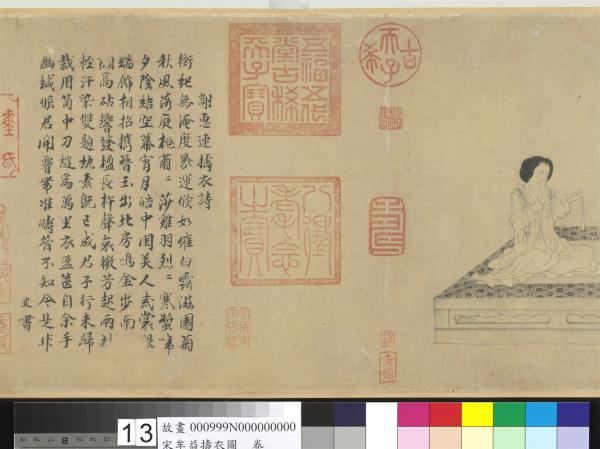 古希天子
五福五代堂古稀天子寶
八徵耄念之寶
謝惠連擣衣詩
衡紀無淹度晷運倏如催白露滋園菊
秋風落庭槐肅=莎雞羽烈=寒螿啼
夕陰結空幕宵月皓中閨美人戒裳服
端飾相招攜簪玉出北房鳴金步南
高砧響發楹長杵聲哀微芳起兩袖
輕汗染雙題紈素既已成君子行未歸
裁用笥中刀縫為萬里衣盈篋自余手
幽緘俟君開腰帶准疇昔不知今是非
史書
13
故畫 000999N000000000
宋牟益擣衣圖 卷
B